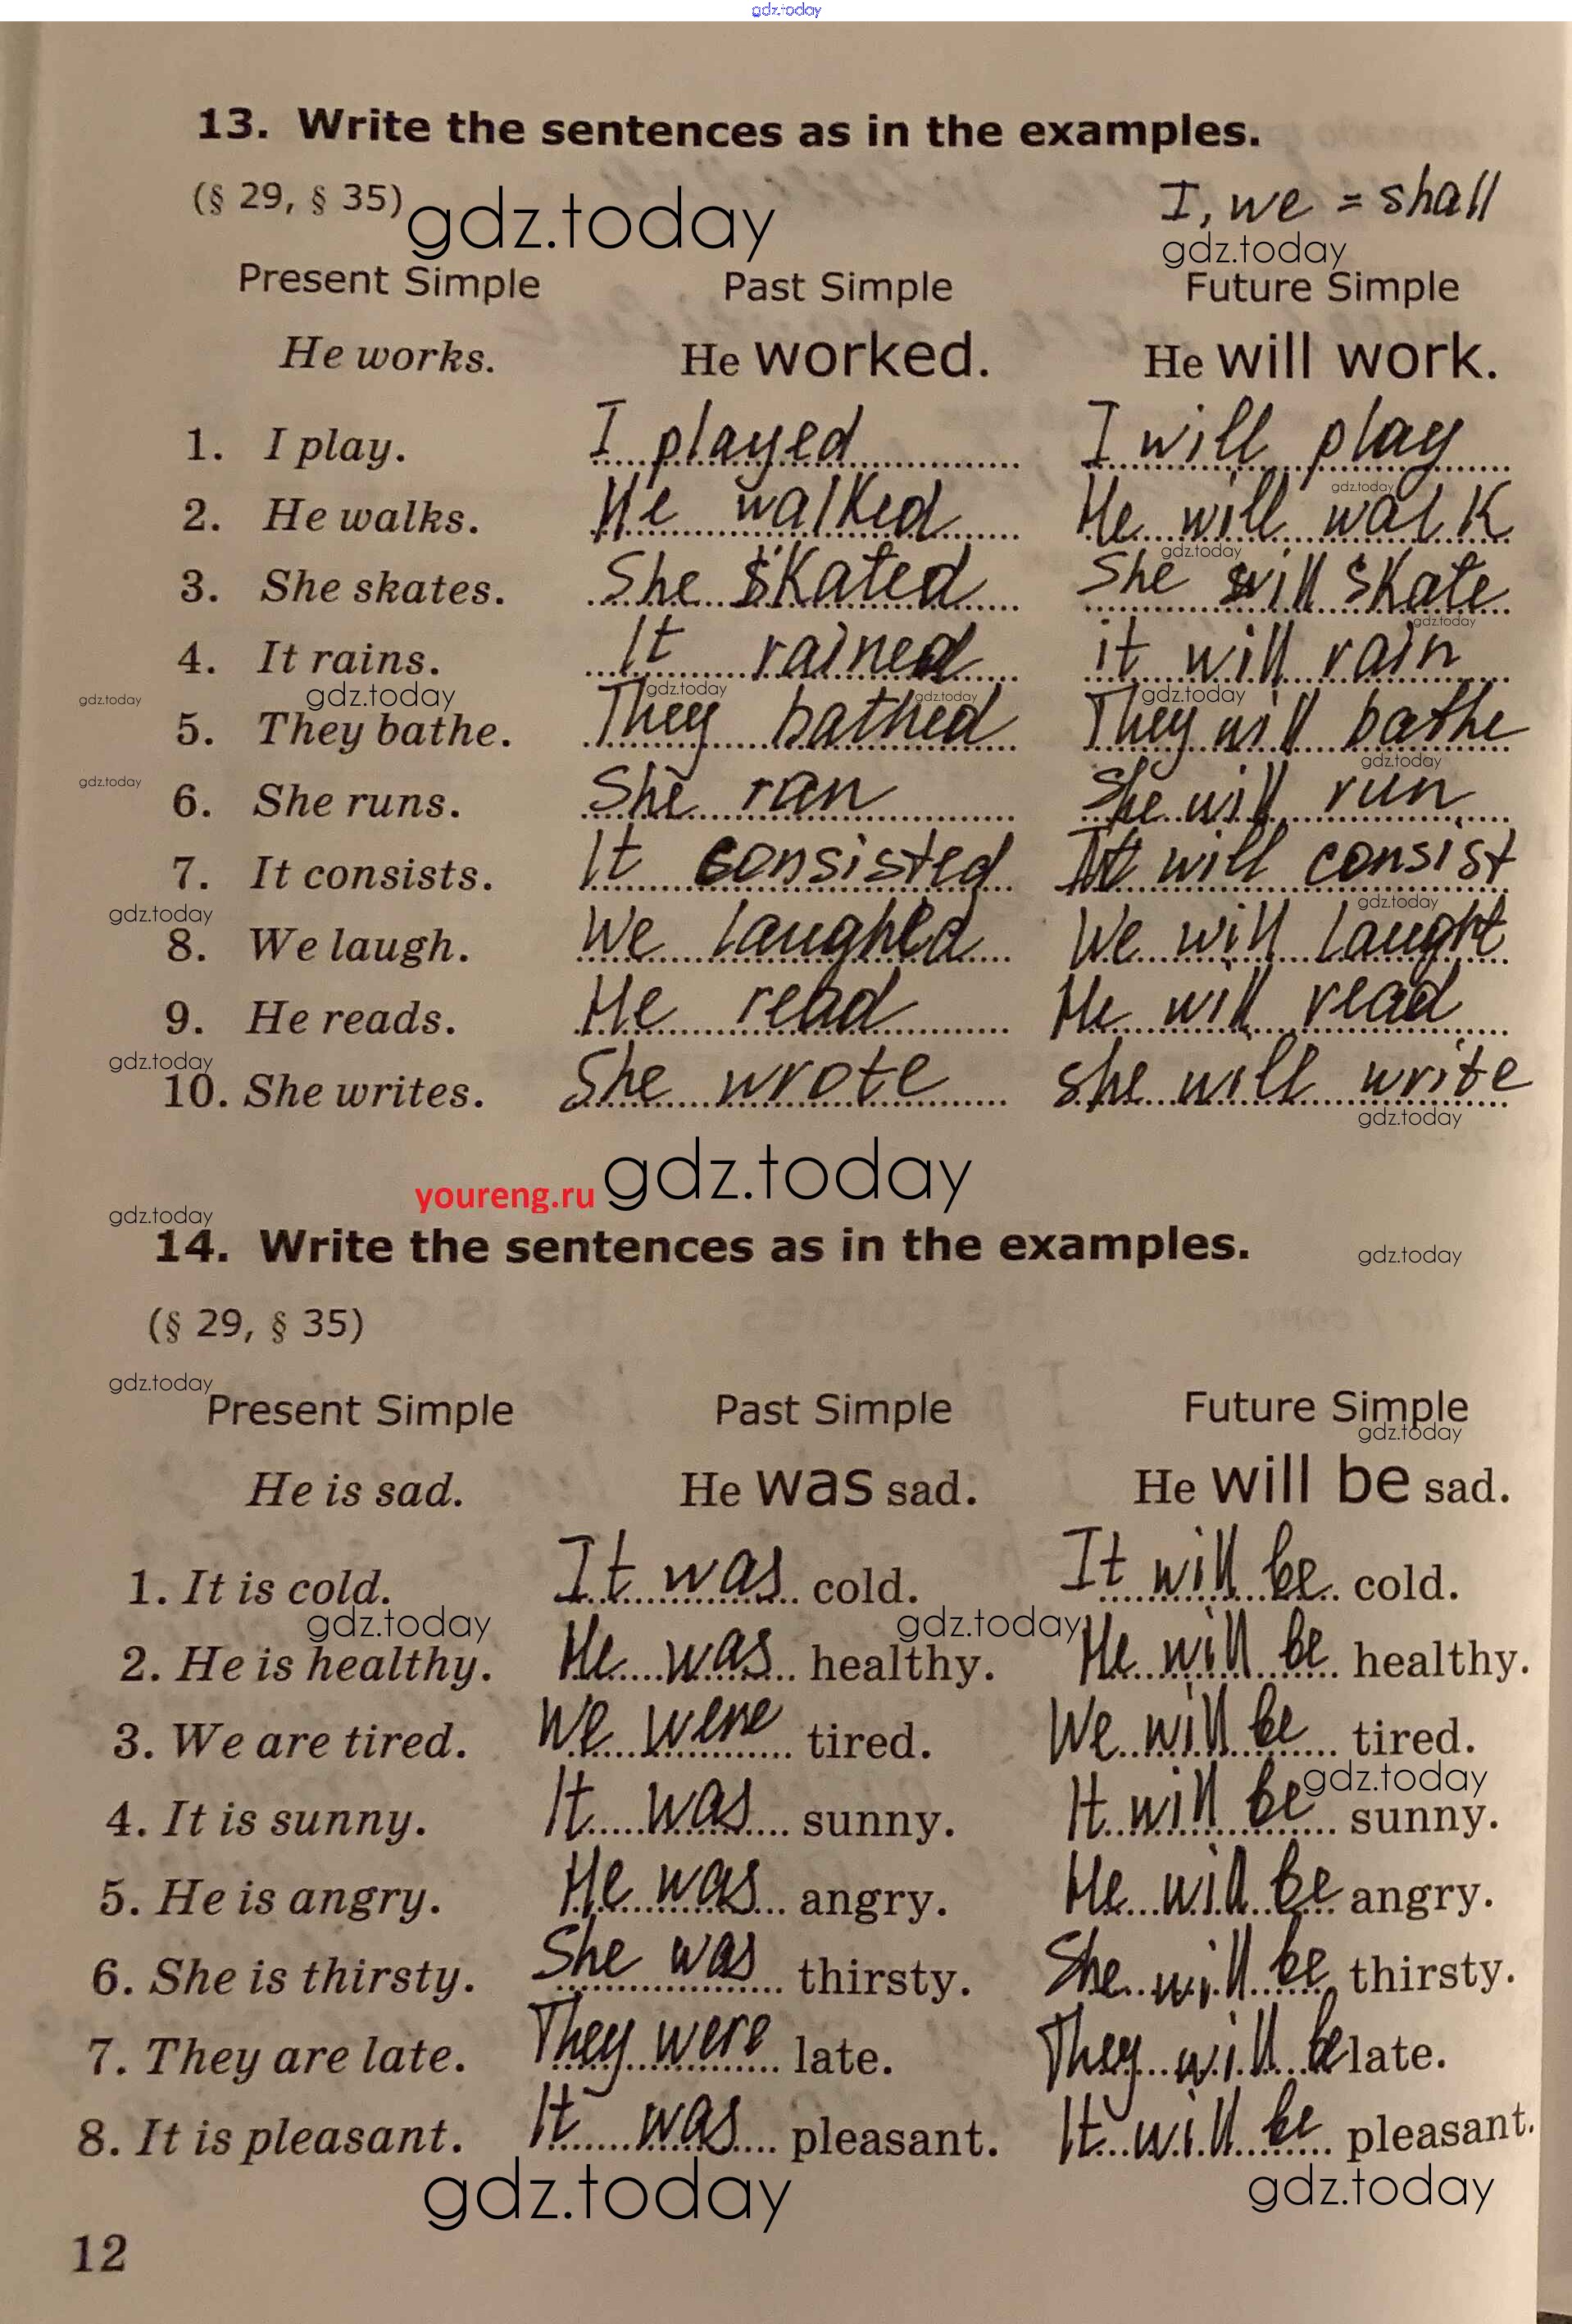 gdz.today
13. Write the sentences as in the examples.
(§ 29, § 35) gdz.today I, we = shall
gdz.today
Present Simple Past Simple Future Simple
He works. He worked. He will work.
1. I play. I played I will play
gdz.today
2. He walks. He walked He will walk
gdz.today
3. She skates. She skated She will skate
gdz.today
4. It rains. It rained it will rain
gdz.today gdz.today gdz.today gdz.today gdz.today
5. They bathe. They bathed They will bathe
gdz.today gdz.today
6. She runs. She ran She will run
7. It consists. It consisted It will consist
gdz.today gdz.today
8. We laugh. We laughed We will laught
9. He reads. He read He will read
gdz.today
10. She writes. She wrote she will write
gdz.today
youreng.ru gdz.today
gdz.today
14. Write the sentences as in the examples. gdz.today
(§ 29, § 35)
gdz.today
Present Simple Past Simple Future Simple
gdz.today
He is sad. He was sad. He will be sad.
1. It is cold. It was cold. It will be cold.
gdz.today gdz.today
2. He is healthy. He was healthy. He will be healthy.
3. We are tired. We were tired. We will be tired.
gdz.today
4. It is sunny. It was sunny. It will be sunny.
5. He is angry. He was angry. He will be angry.
6. She is thirsty. She was thirsty. She will be thirsty.
7. They are late. They were late. They will be late.
8. It is pleasant. It was pleasant. It will be pleasant.
gdz.today gdz.today
12